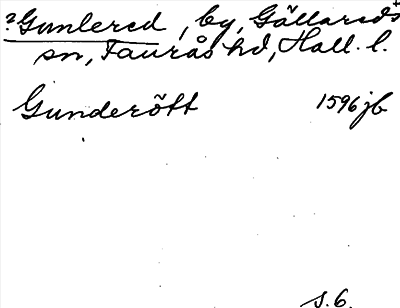 ?Gunlered, by, Gällareds+
sn, Faurås hd, Hall. l.
Gunderött 1596 jb
s. 6.